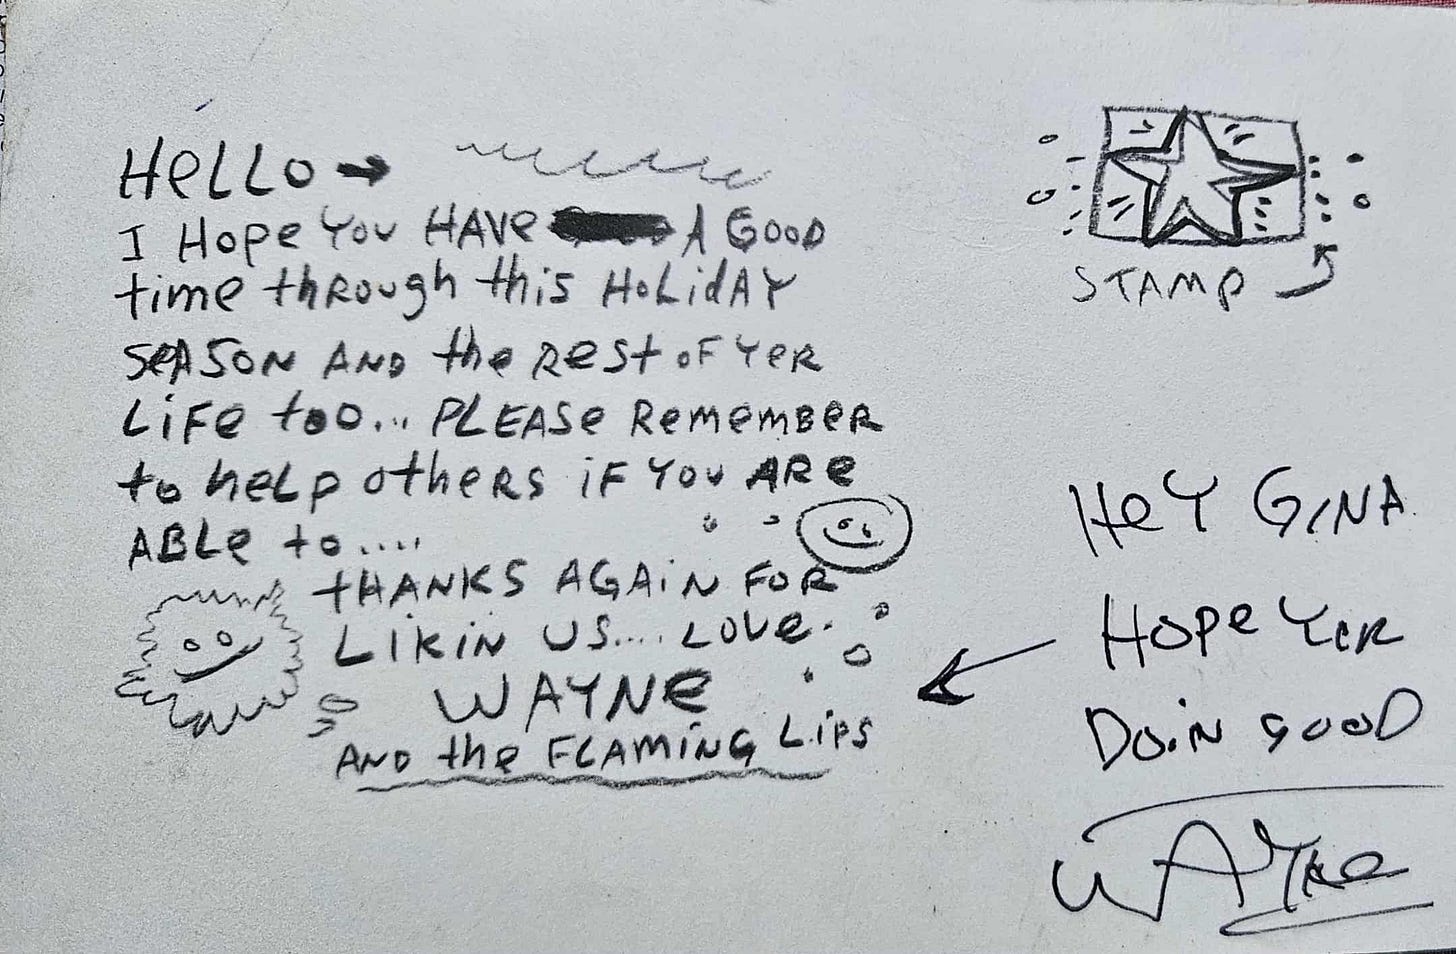 HeLLo →
I Hope You HAVe A GOOD
time thRough this HoLidAY
SeASON AND the Rest oF YeR
LiFe too... PLEASe RememBeR
to heLp otheRs iF You ARe
ABLe to....
tHANKS AGAiN FOR
LiKiN US.... LOVe.
WAYNe
AND the FLAMiNG Lips
STAMP
HeY GiNA.
Hope YeR
DoiN gooD
WAYNe